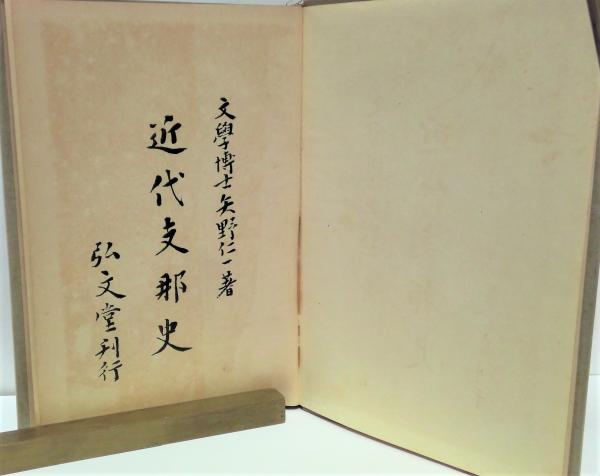 文學博士矢野仁一著
近代支那史
弘文堂刋行